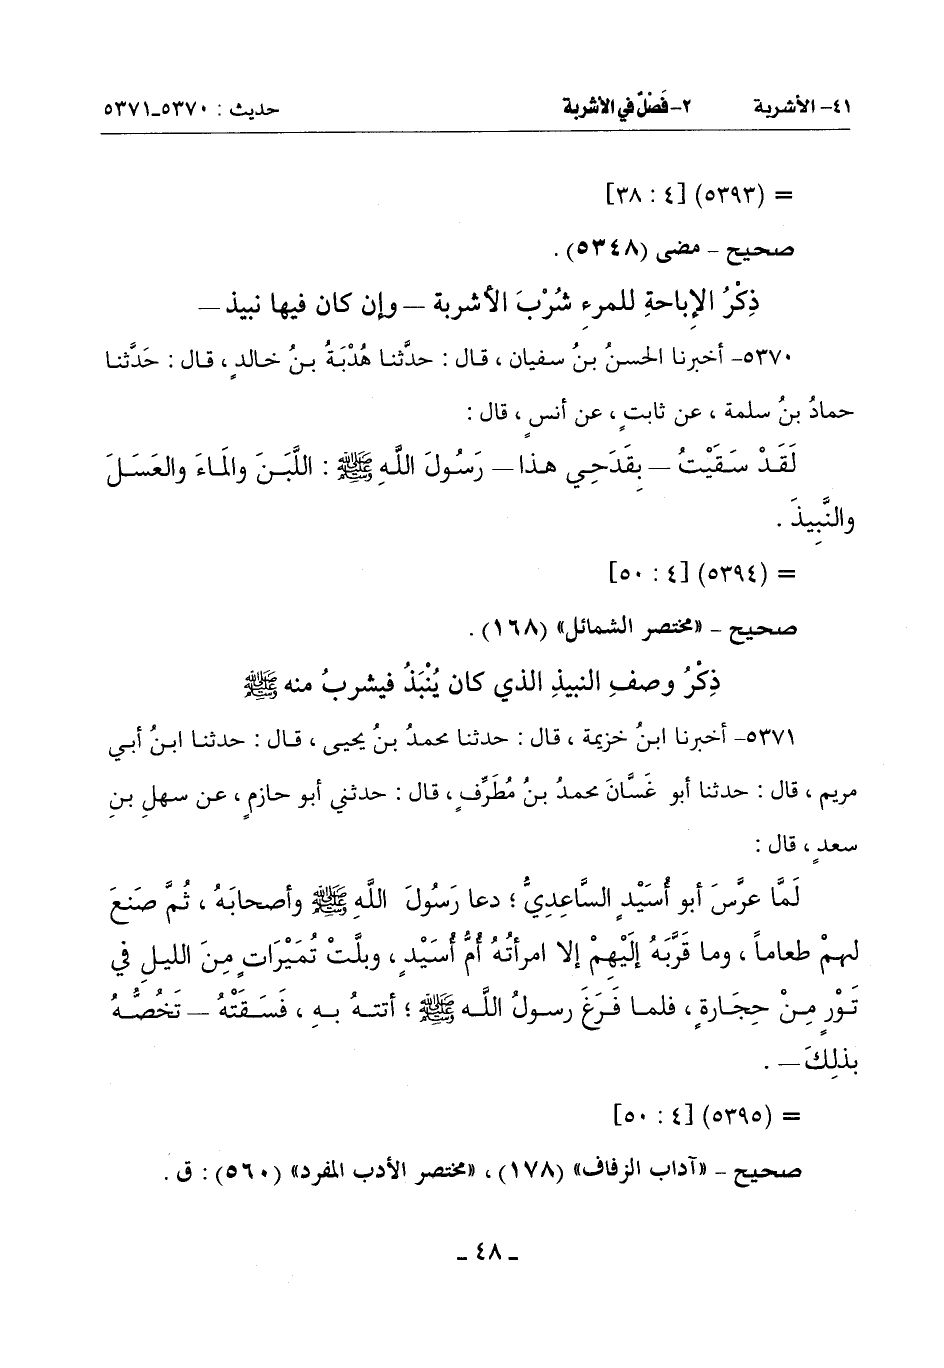 ٤١- الأشربة ٢- فَصْلٌ في الأشربة حديث : ٥٣٧٠-٥٣٧١
= (٥٣٩٣) [٤ : ٣٨]
صحيح - مضى (٥٣٤٨) .
ذِكْرُ الإِباحةِ للمرءِ شُرْبَ الأشربة – وإن كان فيها نبيذ –
٥٣٧٠- أخبرنا الحسنُ بنُ سفيان ، قال : حدَّثنا هُدْبَةُ بنُ خالدٍ ، قال : حَدَّثنا
حمادُ بنُ سلمة ، عن ثابتٍ ، عن أنسٍ ، قال :
لَقَدْ سَقَيْتُ – بِقَدَحِي هذا – رَسُولَ اللَّهِ ﷺ : اللَّبَنَ والماءَ والعَسَلَ
والنَّبِيذَ .
= (٥٣٩٤) [٤ : ٥٠]
صحيح - «مختصر الشمائل» (١٦٨) .
ذِكْرُ وصفِ النبيذِ الذي كان يُنْبَذُ فيشربُ منه ﷺ
٥٣٧١- أخبرنا ابنُ خزيمة ، قال : حدثنا محمدُ بنُ يحيى ، قال : حدثنا ابنُ أبي
مريم ، قال : حدثنا أبو غَسَّانَ محمدُ بنُ مُطَرِّفٍ ، قال : حدثني أبو حازمٍ ، عن سهلِ بنِ
سعدٍ ، قال :
لَمَّا عرَّسَ أبو أُسَيْدٍ السَّاعِدِيُّ ؛ دعا رَسُولَ اللَّهِ ﷺ وأصحابَهُ ، ثُمَّ صَنَعَ
لهمْ طعاماً ، وما قَرَّبَهُ إلَيْهِمْ إلا امرأتُهُ أُمُّ أُسَيْدٍ ، وبلَّتْ تُمَيْرَاتٍ مِنَ الليلِ في
تَوْرٍ مِنْ حِجَارةٍ ، فلما فَرَغَ رسولُ اللَّه ﷺ ؛ أتتهُ بهِ ، فَسَقَتْهُ – تَخُصُّهُ
بذلِكَ – .
= (٥٣٩٥) [٤ : ٥٠]
صحيح - «آداب الزفاف» (١٧٨) ، «مختصر الأدب المفرد» (٥٦٠) : ق .
- ٤٨ -